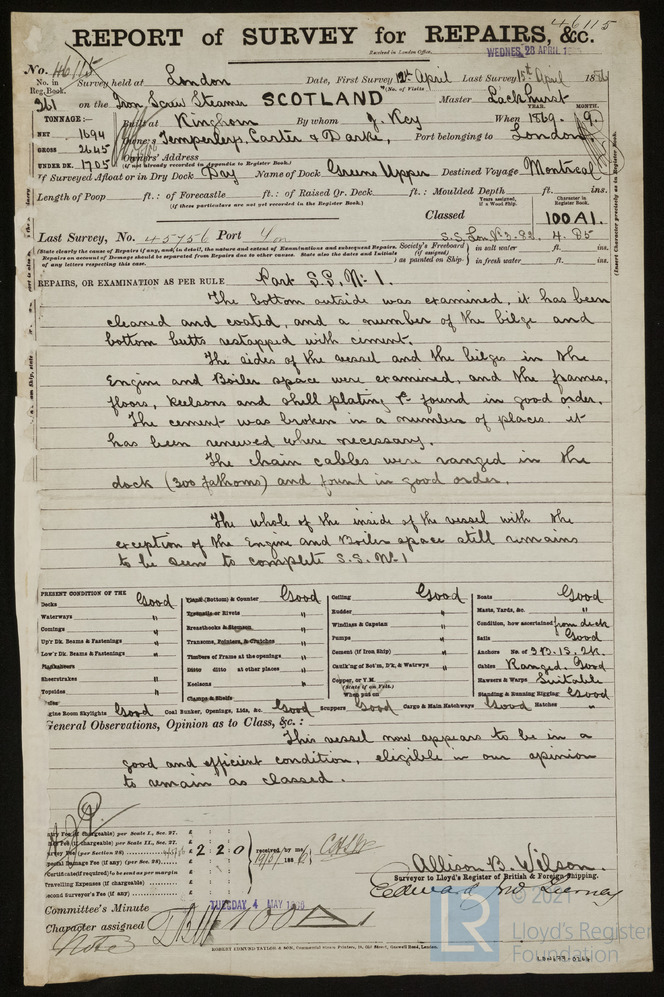 46115
REPORT of SURVEY for REPAIRS, &c.
Received in London Office, WEDNES. 28 APRIL
No. 46115
No. in Reg. Book. Survey held at London Date, First Survey 12th April Last Survey 15th April 1886
(No. of Visits
361 on the Iron Screw Steamer SCOTLAND Master Lackhurst
YEAR. MONTH.
TONNAGE:— Built at Kinghorn By whom J. Key When 1869. 9.
NET 1694
GROSS 2645
UNDER DK. 1705
Owners Temperleys, Carter & Darke, Port belonging to London
Owners' Address
(If not already recorded in Appendix to Register Book.)
If Surveyed Afloat or in Dry Dock Dry Name of Dock Greens Upper Destined Voyage Montreal
Length of Poop ft.: of Forecastle ft.: of Raised Qr. Deck ft.: Moulded Depth ft. ins.
(If these particulars are not yet recorded in the Register Book.)
Years assigned, if a Wood Ship. Character in Register Book.
Classed 100 A1.
Last Survey, No. 45756 Port Lon S.S. Lon. No 3. 82. 4. 85
(State clearly the cause of Repairs if any, and, in detail, the nature and extent of Examinations and subsequent Repairs.
Repairs on account of Damage should be separated from Repairs due to other causes. State also the dates and initials
of any letters respecting this case.
Society's Freeboard (if assigned) as painted on Ship
in salt water ft. ins.
in fresh water ft. ins.
(Insert Character precisely as in Register Book.
REPAIRS, OR EXAMINATION AS PER RULE Part S.S. No 1.
The bottom outside was examined, it has been
cleaned and coated, and a number of the bilge and
bottom butts restapped with cement.
The sides of the vessel and the bilges in the
Engine and Boiler space were examined, and the frames,
floors, keelsons and shell plating &c found in good order.
The cement was broken in a number of places. it
has been renewed where necessary.
The chain cables were ranged in the
dock (300 fathoms) and found in good order.
The whole of the inside of the vessel with the
exception of the Engine and Boiler space still remains
to be seen to complete S.S. No 1
PRESENT CONDITION OF THE
Decks Good
Waterways "
Comings "
Up'r Dk. Beams & Fastenings "
Low'r Dk. Beams & Fastenings "
Sheerstrakes "
Topsides "
Plank (Bottom) & Counter Good
Treenails or Rivets "
Breasthooks & Stemson "
Transoms, Pointers, & Crutches "
Timbers of Frame at the openings "
Ditto ditto at other places "
Keelsons "
Clamps & Shelfs
Ceiling Good
Rudder "
Windlass & Capstan "
Pumps "
Cement (if Iron Ship) "
Caulk'ng of Bot'm, D'k, & Watrwys "
Copper, or Y.M.
(State if on Felt.)
When put on
Boats Good
Masts, Yards, &c. "
Condition, how ascertained from deck
Sails Good
Anchors No. of 3B. 1S. 2K.
Cables Ranged. Good
Hawsers & Warps Suitable
Standing & Running Rigging Good
Engine Room Skylights Good Coal Bunker, Openings, Lids, &c. Good Scuppers Good Cargo & Main Hatchways Good Hatches "
General Observations, Opinion as to Class, &c. :
This vessel now appears to be in a
good and efficient condition, eligible in our opinion
to remain as classed.
(if chargeable) per Scale I., Sec. 27. £
Fee (if chargeable) per Scale II., Sec. 27. £
Survey Fee (per Section 28) £ 2 2 0 received by me
Special Damage Fee (if any) (per Sec. 28) £
Certificate (if required) to be sent as per margin
Travelling Expenses (if chargeable) £
Second Surveyor's Fee (if any) £
Allison B. Wilson.
Surveyor to Lloyd's Register of British & Foreign Shipping.
Committee's Minute TUESDAY 4 MAY 1886
Character assigned 100 A1
Note
ROBERT EDMUND TAYLOR & SON, Commercial Steam Printers, 19, Old Street, Goswell Road, London.
© 2021
LR
Lloyd's Register
Foundation